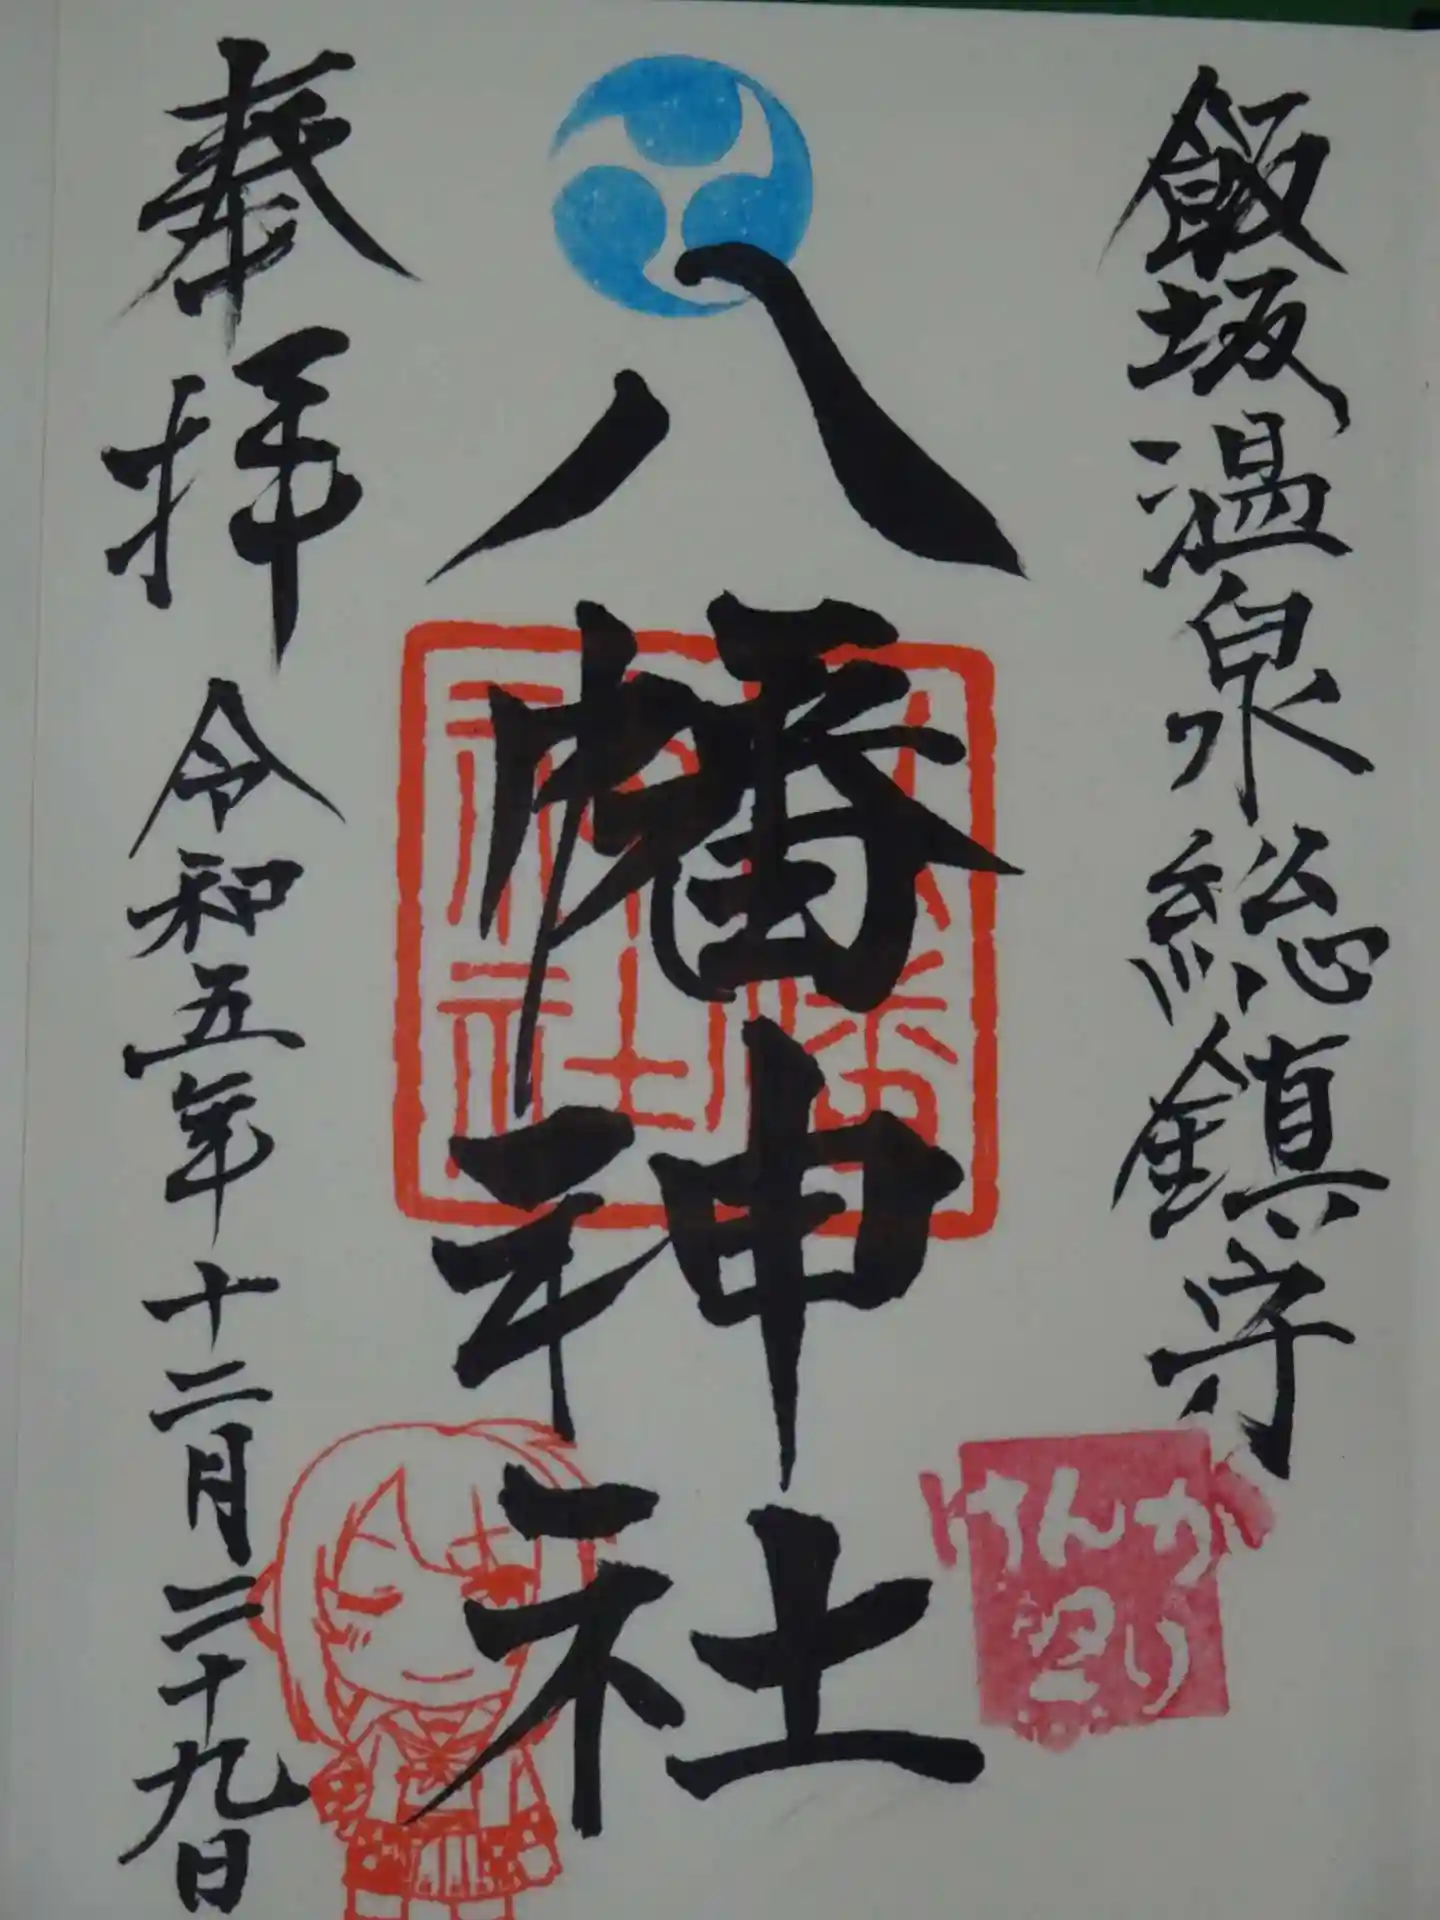 飯坂温泉総鎮守
八幡神社
奉拝
令和五年十二月二十九日
八幡
神社
けんか
祭り